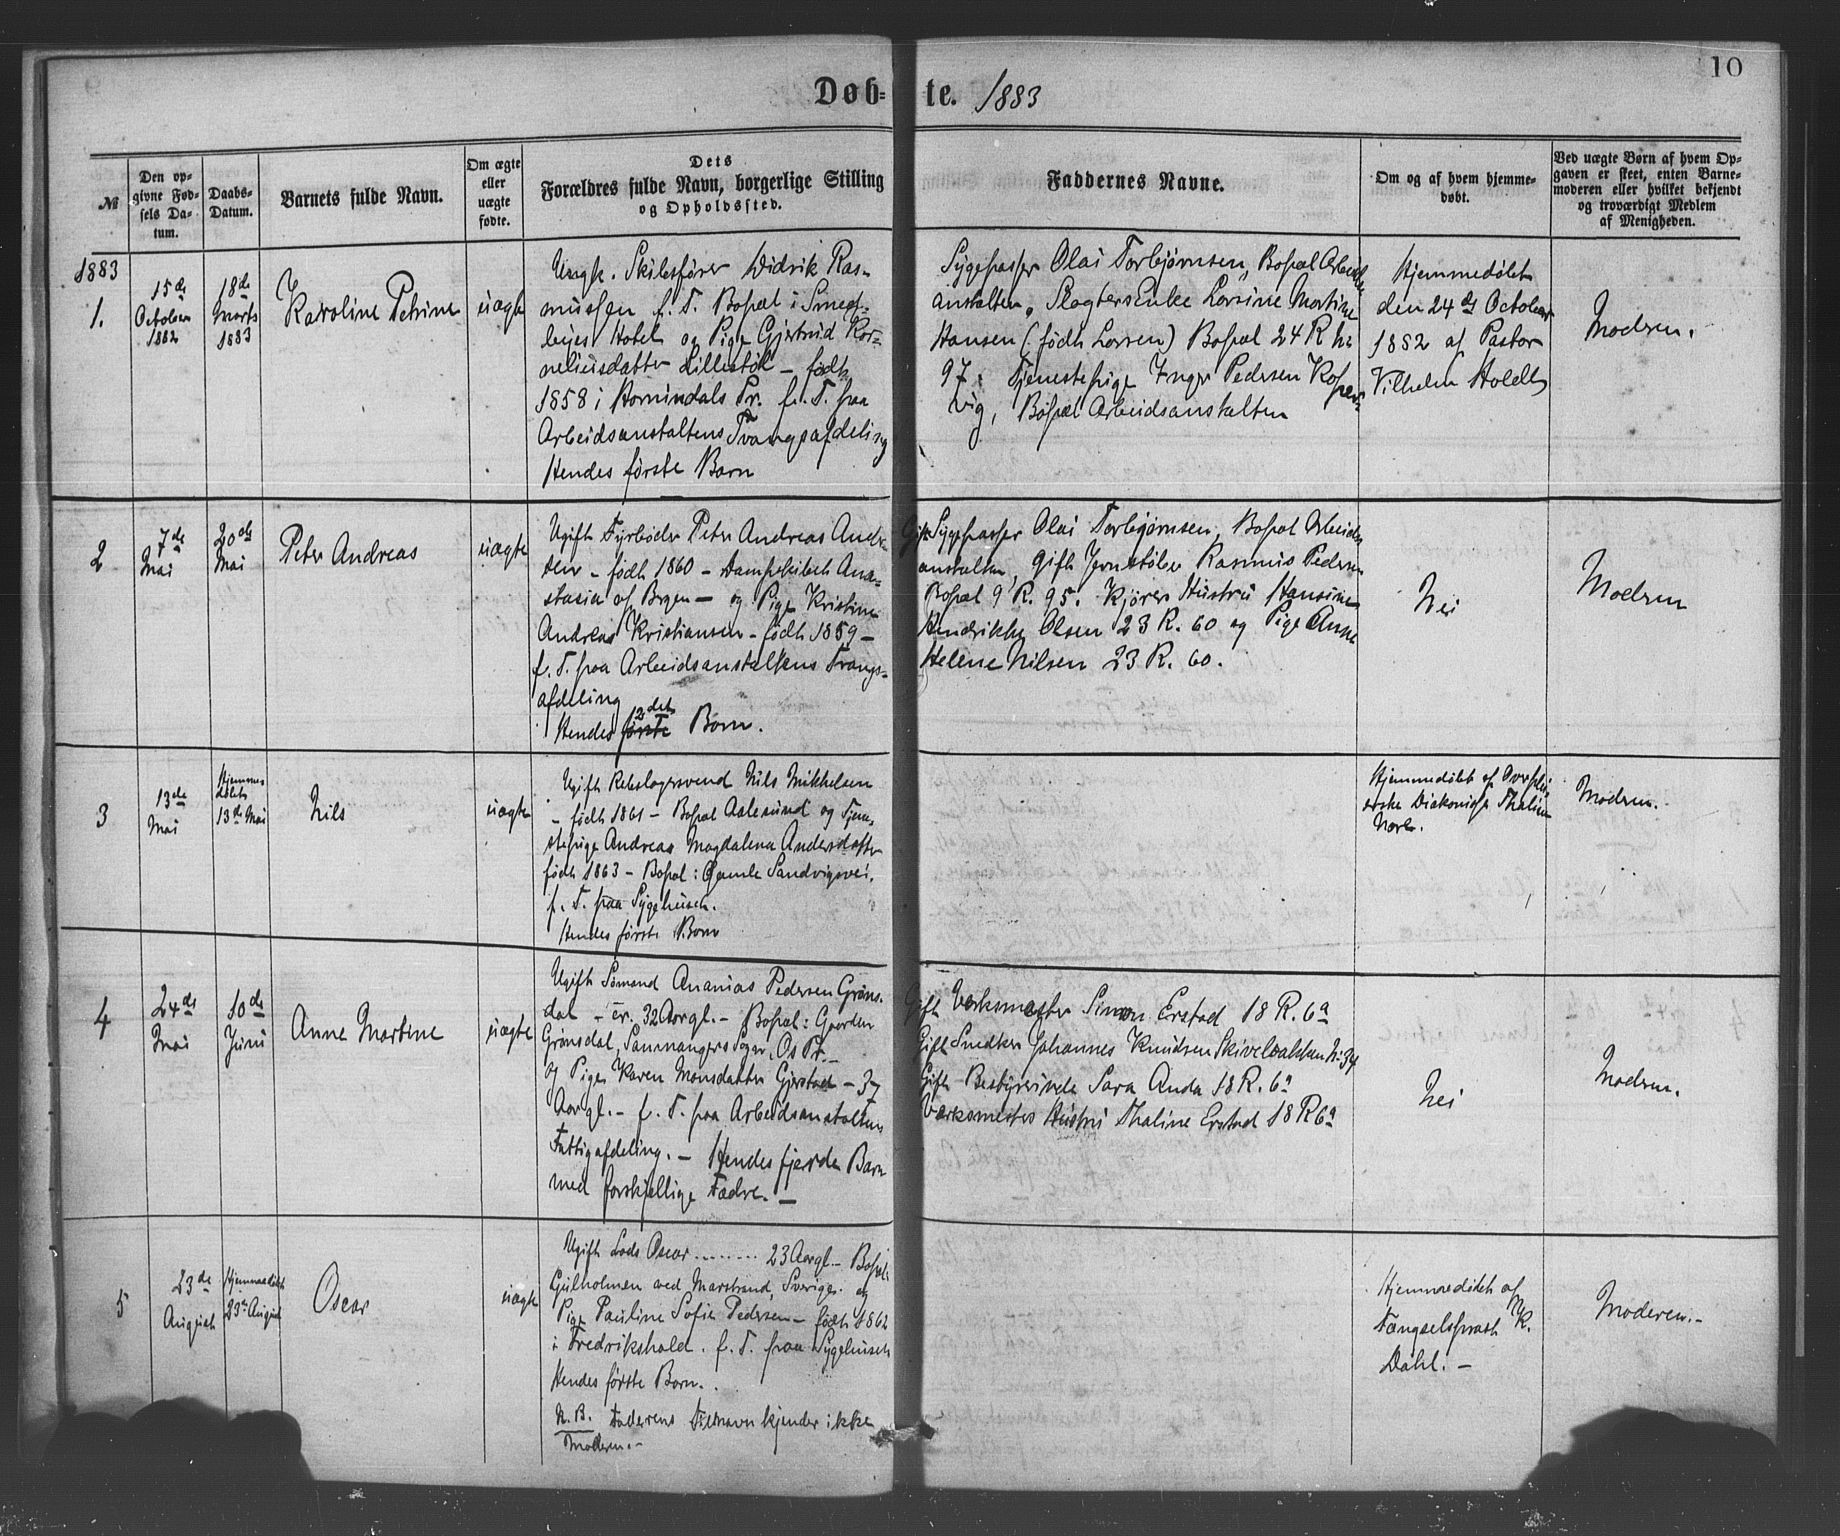 10
Døb-te. 1883
№
Den op-
givne Fød-
sels Da-
tum.
Daabs-
Datum.
Barnets fulde Navn.
Om ægte
eller
uægte
fødte.
Dets
Forældres fulde Navn, borgerlige Stilling
og Opholdssted.
Faddernes Navne.
Om og af hvem hjemme-
døbt.
Ved uægte Børn af hvem Op-
gaven er skeet, enten Barne-
moderen eller hvilket bekjendt
og troværdigt Medlem
af Menigheden.
1883
1.
15de
October
1882
18de
Marts
1883
Karoline Petrine
uægte
Ungk. Skibsfører Didrik Ras-
mussen f. T. Bopæl i Smed-
byes Hotel og Pige Gjertrud Kor-
neliusdatter Lillestøl – født
1858 i Hornindals Pr. f. T. paa
Arbeidsanstaltens Tvangsafdeling
Hendes første Barn
Sygepasser Olai Torbjørnsen, Bopæl Arbeids
anstalten, Slagters Enke Lovine Martine
Hansen (født Lorren) Bopæl 24 R №
97. Tjenestepige Inger Pedersen Koper-
vig, Bopæl Arbeidsanstalten
Hjemmedøbt
den 24de October
1882 af Pastor
Vilhelm Holdt
Moderen.
2
7de
Mai
20de
Mai
Peter Andreas
uægte
Ugift Fyrbøder Peter Andreas Andre-
sen – født 1860 – Dampskibet Ana-
stasia af Brgen – og Pige Kristine
Andrea Kristiansen – født 1859 –
f. T. paa Arbeidsanstaltens Tvangs-
afdeling
2det
Hendes første Barn.
Gift Sygepasser Olai Torbjørnsen, Bopæl Arbeids
anstalten, Gift Jernstøber Rasmus Pedersen
Bopæl 9 R. 95. Kjører Hustru Hansine
Hendrikke Olsen 23 R. 60 og Pige Anne
Helene Nilsen 23 R. 60.
Nei
Moderen
3
13de
Mai
Hjemme
døbt
13de Mai
Nils
uægte
Ugift Rebslagersvend Nils Mikkelsen
– født 1861 – Bopæl Aalesund og Tjene-
stepige Andrea Magdalena Andersdatter
født 1863 – Bopæl: Gamle Sandvigsvei.
f. T. paa Sygehuset.
Hendes første Barn
Hjemmedøbt af Overply-
erske Diakonisse Thaline
Moderen.
4
24de
Mai
10de
Juni
Anne Martine
uægte
Ugift Sømand Ananias Pedersen Grøns-
dal – er. 32 Aargl. – Bopæl: Gaarden
Grønsdal, Samnangers Sogn, Os Pr. –
og Pige Karen Monsdatter Gjerstad – 37
Aargl. – f. T. paa Arbeidsanstaltens
Fattigafdeling. – Hendes fjerde Barn
med forskjellige Fædre. –
Gift Værksmester Simon Erstad 18 R. 6a
Gift Snedker Johannes Knudsen Skivebakken №: 34
Gift Bestyrerinde Sara Anda 18 R. 6a
Værksmesters Hustru Thaline Erstad 18 R 6a
Nei
Moderen.
5
23de
August
Hjemmedøbt
23de August
Oscar
uægte
Ugift Lods Oscar ........ 23 Aargl – Bopæl:
Gulholmen ved Marstrand, Sverige. og
Pige Pauline Sofie Pedersen – født 1862
i Fredrikshald. f. T. paa Sygehuset
Hendes første Barn.
N.B. Faderens Tilnavn kjender ikke
Moderen. –
Hjemmedøbt af
Fængselsprest K.
Dahl. –
Moderen. –